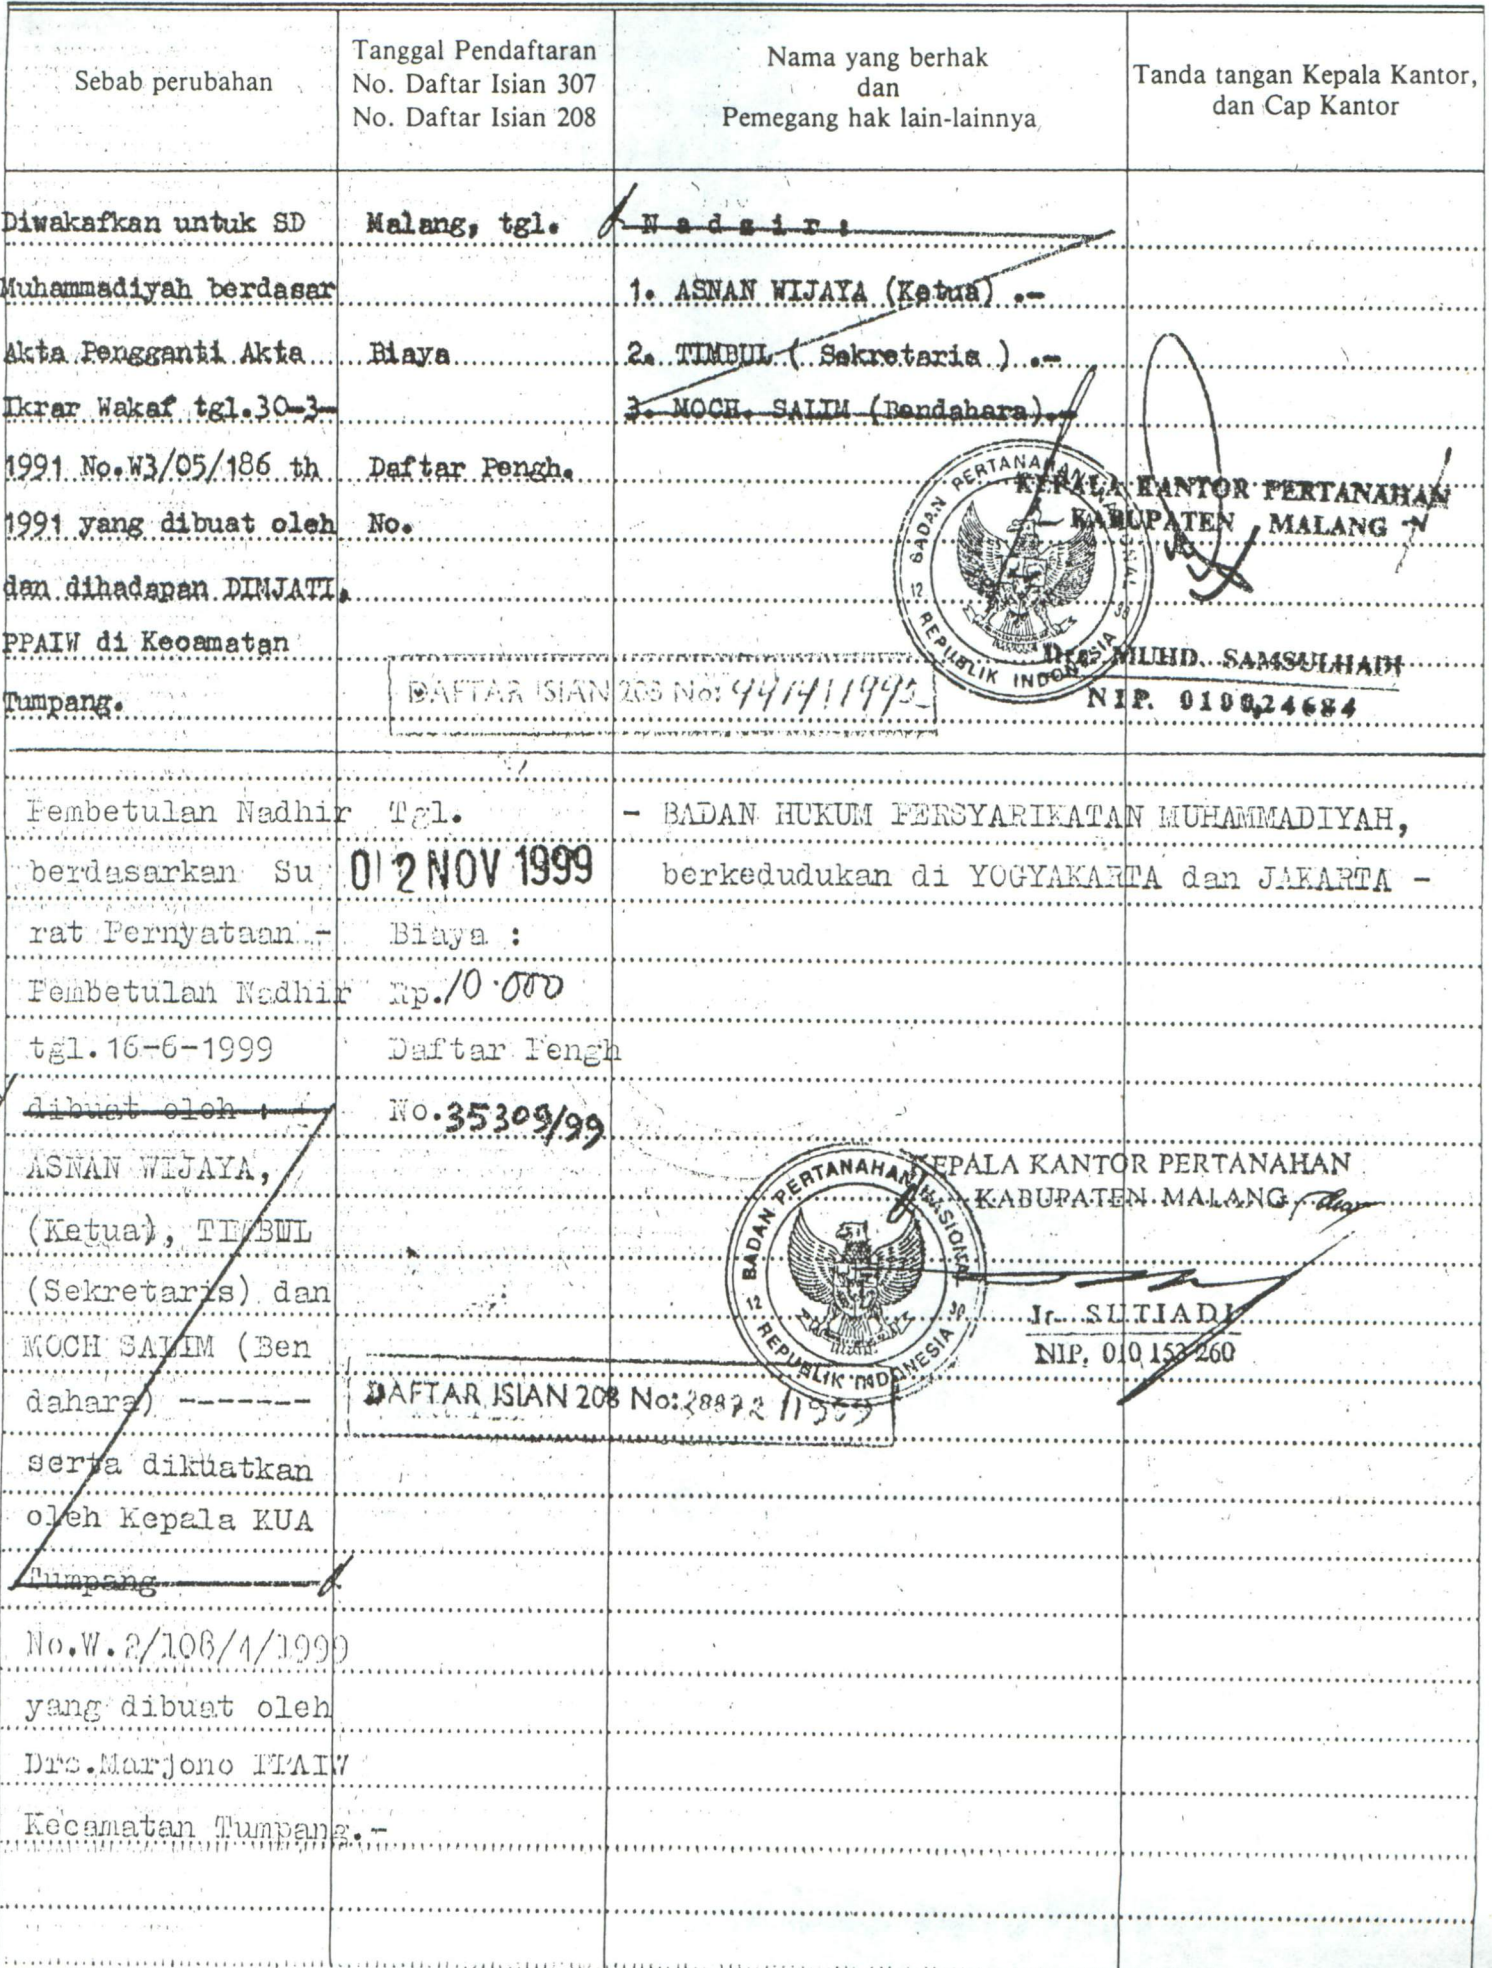 Sebab perubahan
Tanggal Pendaftaran
No. Daftar Isian 307
No. Daftar Isian 208
Nama yang berhak
dan
Pemegang hak lain-lainnya
Tanda tangan Kepala Kantor,
dan Cap Kantor
Diwakafkan untuk SD
Muhammadiyah berdasar
Akta Pengganti Akta
Ikrar Wakaf tgl.30-3-
1991 No.W3/05/186 th
1991 yang dibuat oleh
dan dihadapan DIMJATI,
PPAIW di Kecamatan
Tumpang.
Malang, tgl.
Biaya
Daftar Pengh.
No.
DAFTAR ISIAN 208 No:
N a d z i r :
1. ASNAN WIJAYA (Ketua) .-
2. TIMBUL ( Sekretaris ) .-
3. MOCH. SALIM (Bendahara).-
BADAN PERTANAHAN NASIONAL
REPUBLIK INDONESIA
KEPALA KANTOR PERTANAHAN
KABUPATEN MALANG
Drs. MUHD. SAMSULHADI
NIP. 010024684
Pembetulan Nadhir
berdasarkan Su
rat Pernyataan -
Pembetulan Nadhir
tgl.16-6-1999
dibuat oleh :
ASNAN WIJAYA,
(Ketua), TIMBUL
(Sekretaris) dan
MOCH SALIM (Ben
dahara) -------
serta dikuatkan
oleh Kepala KUA
Tumpang
No.W.2/108/4/1999
yang dibuat oleh
Drs.Marjono PPAIW
Kecamatan Tumpang.-
Tgl.
02 NOV 1999
Biaya :
Rp.10.000
Daftar Pengh
No.35309/99
DAFTAR ISIAN 208 No:
- BADAN HUKUM PERSYARIKATAN MUHAMMADIYAH,
berkedudukan di YOGYAKARTA dan JAKARTA -
BADAN PERTANAHAN NASIONAL
12 REPUBLIK INDONESIA 30
KEPALA KANTOR PERTANAHAN
KABUPATEN MALANG
Ir. SUTIADI
NIP. 010 153 260